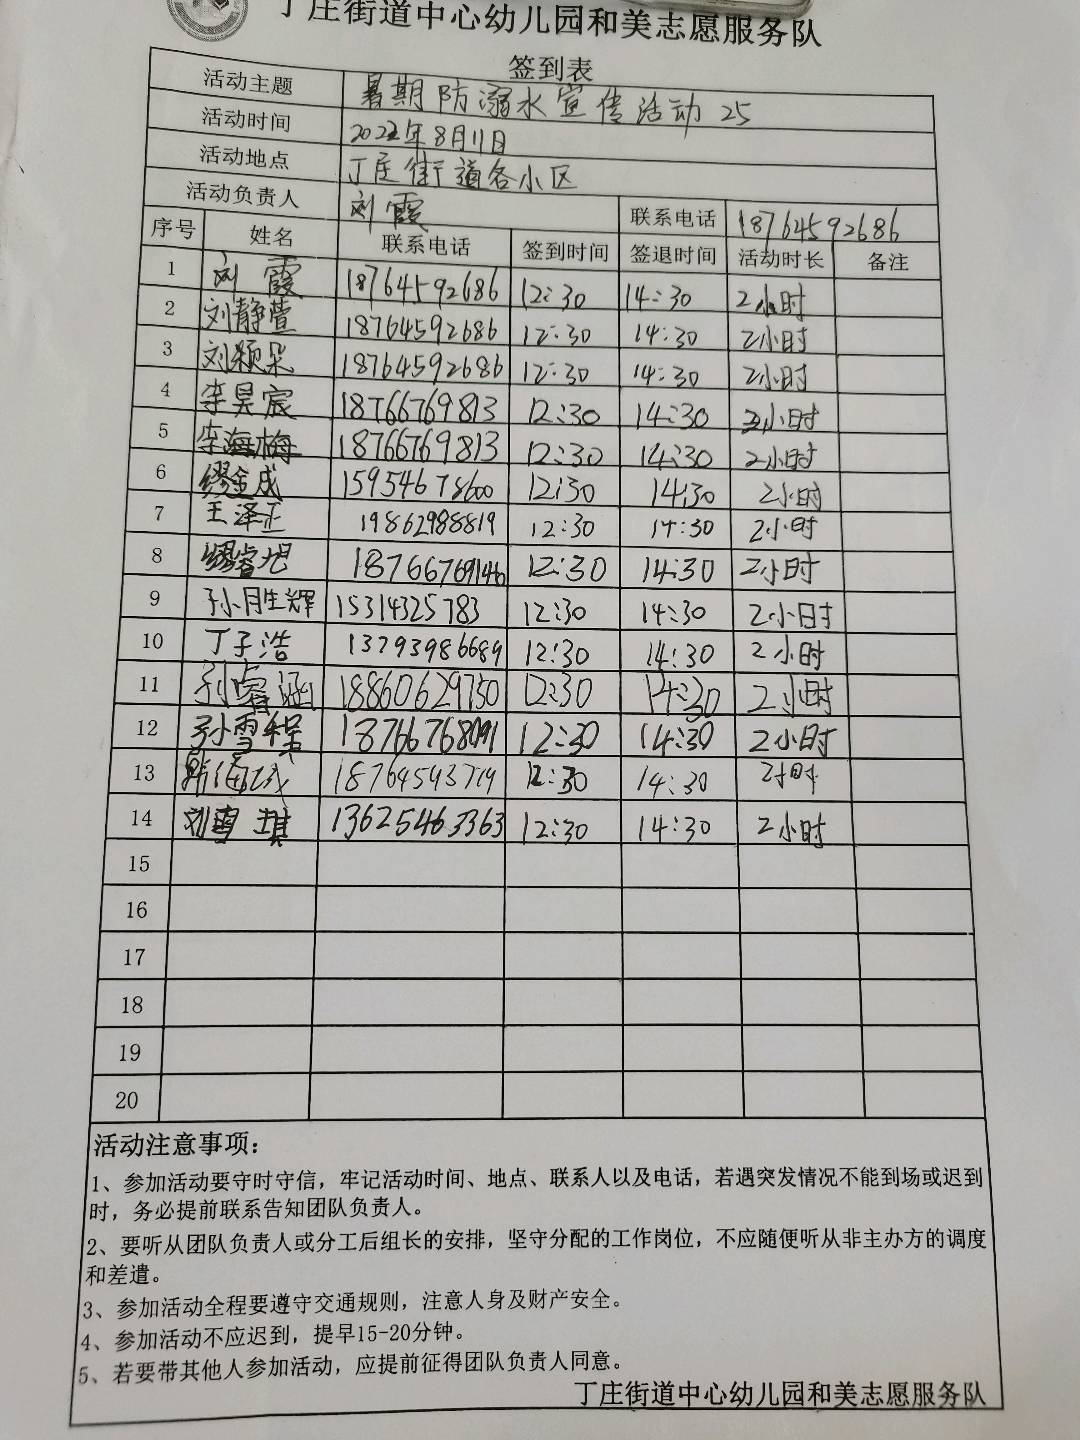 丁庄街道中心幼儿园和美志愿服务队
签到表
活动主题 暑期防溺水宣传活动25
活动时间 2022年8月11日
活动地点 丁庄街道各小区
活动负责人 刘霞 联系电话 18764592686
序号 姓名 联系电话 签到时间 签退时间 活动时长 备注
1 刘霞 18764592686 12:30 14:30 2小时
2 刘静萱 18764592686 12:30 14:30 2小时
3 刘颖朵 18764592686 12:30 14:30 2小时
4 李昊宸 18766769813 12:30 14:30 2小时
5 李海梅 18766769813 12:30 14:30 2小时
6 缪金成 15954678600 12:30 14:30 2小时
7 王泽正 19862988819 12:30 14:30 2小时
8 缪睿旭 18766769146 12:30 14:30 2小时
9 孙胜辉 15314325783 12:30 14:30 2小时
10 丁子浩 13793986689 12:30 14:30 2小时
11 孙睿涵 18860629750 12:30 14:30 2小时
12 孙雪程 18766768091 12:30 14:30 2小时
13 12:30 14:30 2小时
14 刘雪琪 13625463363 12:30 14:30 2小时
15
16
17
18
19
20
活动注意事项：
1、参加活动要守时守信，牢记活动时间、地点、联系人以及电话，若遇突发情况不能到场或迟到
时，务必提前联系告知团队负责人。
2、要听从团队负责人或分工后组长的安排，坚守分配的工作岗位，不应随便听从非主办方的调度
和差遣。
3、参加活动全程要遵守交通规则，注意人身及财产安全。
4、参加活动不应迟到，提早15-20分钟。
5、若要带其他人参加活动，应提前征得团队负责人同意。
丁庄街道中心幼儿园和美志愿服务队